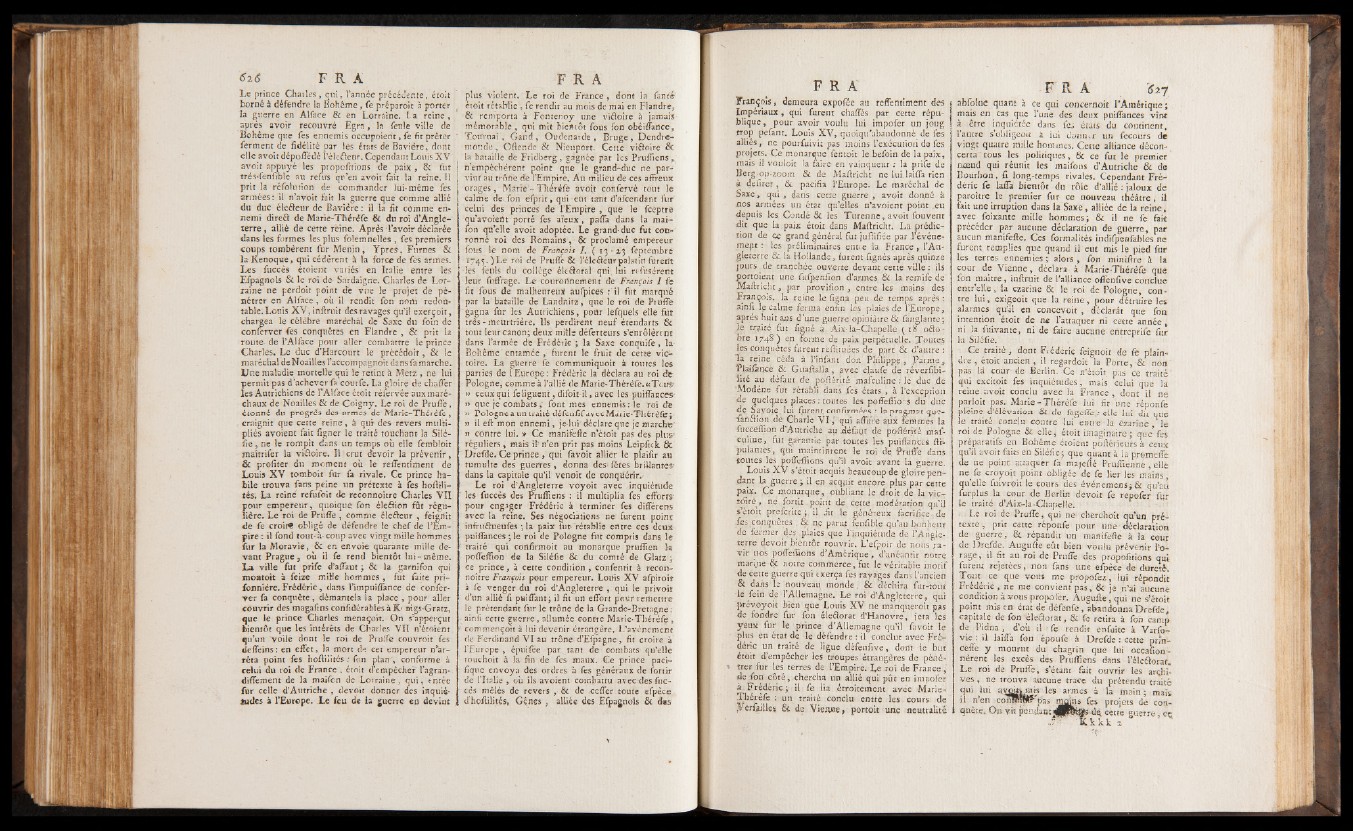 626 F R A F R A
Le prince Charles, qui, l'année précédente, étoit
borné à défendre la Bohême, se préparoit à porter
la guerre en Alsace & en Lorraine. La reine,
après avoir recouvré Egra, la seule ville de
Bohême que ses ennemis occupoient, se fit prêter
serment de fidélité par les états de Bavière, dont
elle avoit dépossédé l'électeur. Cependant Louis XV
avoit appuyé les propositions de paix, & fut
très-sensible au refus qu'en avoit fait la reine. Il
prit la résolution de commander lui-même ses
armées: il n'avoit fait la guerre que comme allié
du duc électeur de Bavière: il la fit comme en-
nemi direct de Marie-Thérèse & du roi d'Angle-
terre, allié de cette reine. Après l'avoir déclarée
dans les formes les plus solemnelles, ses premiers
coups tombèrent sur Menin, Ypres, Furnes &
la Kenoque, qui cédèrent à la force de ses armes.
Les succès étoient variés en Italie entre les
Espagnols & le roi de Sardaigne. Charles de Lor-
raine ne perdoit point de vue le projet de pé-
nétrer en Alsace, où il rendit son nom redou-
table. Louis XV, instruit des ravages qu'il exerçoit,
chargea le célèbre maréchal de Saxe du soin de
conserver ses conquêtes en Flandre, & prit la
route de l'Alsace pour aller combattre le prince
Charles. Le duc d'Harcourt le précédoit, & le
maréchal de Noailles l'accompagnoit dans sa marche.
Une maladie mortelle qui le retint à Metz, ne lui
permit pas d'achever sa course. La gloire de chasser
les Autrichiens de l'Alsace étoit réservée aux maré-
chaux de Noailles & de Coigny. Le roi de Prusse,
étonné du progrès des armes de Marie-Thérèse,
craignit que cette reine, à qui des revers multi-
pliés avoient fait signer le traité touchant la Silé-
sie, ne le rompît dans un temps où elle sembloit
maîtriser la victoire. Il crut devoir la prévenir,
& profiter du moment où le ressentiment de
Louis XV tomboit sur sa rivale. Ce prince ha-
bile trouva sans peine un prétexte à ses hostili-
tés. La reine refusoit de reconnoître Charles VII
pour empereur, quoique son élection fût régu-
lière. Le roi de Prusse, comme électeur, feignit
de se croire obligé de défendre le chef de l'Em-
pire: il fond tout-à-coup avec vingt mille hommes
sur la Moravie, & en envoie quarante mille de-
vant Prague, où il se rend bientôt lui-même.
La ville fut prise d'assaut; & la garnison qui
montoit à seize mille hommes, fut faite pri-
sonnière. Frédéric, dans l'impuissance de conser-
ver sa conquête, démantela la place, pour aller
couvrir des magasins considérables à Konigs-Gratz,
que le prince Charles menaçoit. On s'apperçut
bientôt que les intérêts de Charles VII n'étoient
qu'un voile dont le roi de Prusse couvroit ses
desseins: en effet, la mort de cet empereur n'ar-
rêta point ses hostilités: son plan, conforme à
celui du roi de France, étoit d'empêcher l'agran-
dissement de la maison de Lorraine, qui, entée
sur celle d'Autriche, devoit donner des inquié-
tudes à l'Europe. Le feu de la guerre en devint
plus violent. Le roi de France, dont la santé
étoit rétablie, se rendit au mois de mai en Flandre,
& remporta à Fontenoy une victoire à jamais
mémorable, qui mit bientôt sous son obéissance,
Tournai, Gand, Oudenarde, Bruge, Dendre-
monde, Ostende & Nieuport. Cette victoire &
la bataille de Fridberg, gagnée par les Prussiens,
n'empêchèrent point que le grand-duc ne par-
vînt au trône de l'Empire. Au milieu de ces affreux
orages, Marie-Thérèse avoit conservé tout le
calme de son esprit, qui eut tant d'ascendant sur
celui des princes de l'Empire, que le sceptre
qu'avoient porté ses aïeux, passa dans la mai-
son qu'elle avoit adoptée. Le grand-duc fut cou-
ronné roi des Romains, & proclamé empereur
sous le nom de François I. (13-23 septembre
1745.) Le roi de Prusse & l'électeur palatin furent
les seuls du collège électoral qui lui refusèrent
leur suffrage. Le couronnement de François I se
fit sous de malheureux auspices: il fut marqué
par la bataille de Landnitz, que le roi de Prusse
gagna sur les Autrichiens, pour lesquels elle fut
très-meurtrière. Ils perdirent neuf étendarts &
tout leur canon; deux mille déserteurs s'enrôlèrent
dans l'armée de Frédéric; la Saxe conquise, la
Bohême entamée, furent le fruit de cette vic-
toire. La guerre se communiquoit à toutes les
parties de l'Europe: Frédéric la déclara au roi de
Pologne, comme à l'allié de Marie-Thérèse. « Tous
» ceux qui se liguent, disoit-il, avec les puissances
» que je combats, sont mes ennemis: le roi de
» Pologne a un traité défensif avec Marie-Thérèse;
» il est mon ennemi, je lui déclare que je marche
» contre lui. » Ce manifeste n'étoit pas des plus
réguliers, mais il n'en prit pas moins Leipsick &
Dresde. Ce prince, qui savoit allier le plaisir au
tumulte des guerres, donna des fêtes brillantes
dans la capitale qu'il venoit de conquérir.
Le roi d'Angleterre voyoit avec inquiétude
les succès des Prussiens: il multiplia ses efforts
pour engager Frédéric à terminer ses différens
avec la reine. Ses négociations ne furent point
infructueuses; la paix fut rétablie entre ces deux
puissances; le roi de Pologne fut compris dans le
traité qui confirmoit au monarque prussien la
possession de la Silésie & du comté de Glatz;
ce prince, à cette condition, consentit à recon-
noître François pour empereur. Louis XV aspiroit
à se venger du roi d'Angleterre, qui le privoit
d'un allié si puissant; il fit un effort pour remettre
le prétendant sur le trône de la Grande-Bretagne:
ainsi cette guerre, allumée contre Marie-Thérèse,
commençoit à lui devenir étrangère. L'avénement
de Ferdinand VI au trône d'Espagne, fit croire à
l'Europe, épuisée par tant de combats qu'elle
touchoit à la fin de ses maux. Ce prince paci-
fique envoya des ordres à ses généraux de sortir
de l'Italie, où ils avoient combattu avec des suc-
cès mêlés de revers, & de cesser toute espèce
d'hostilités, Gênes, alliée des Espagnols & des
F R A F R A 627
François, demeura exposée au ressentiment des
Impériaux, qui furent chassés par cette répu-
blique, pour avoir voulu lui imposer un joug
trop pesant. Louis XV, quoiqu'abandonné de ses
alliés, ne poursuivit pas moins l'exécution de ses
projets. Ce monarque sentoit le besoin de la paix,
mais il vouloit la faire en vainqueur: la prise de
Berg-op-zoom & de Mastricht ne lui laissa rien
à desirer, & pacifia l'Europe. Le maréchal de
Saxe, qui, dans cette guerre, avoit donné à
nos armées un état qu'elles n'avoient point eu
depuis les Condé & les Turenne, avoit souvent
dit que la paix étoit dans Mastricht. La prédic-
tion de ce grand général fut justifiée par l'évène-
ment: les préliminaires entre la France, l'An-
gleterre & la Hollande, furent signés après quinze
jours de tranchée ouverte devant cette ville: ils
portoient une suspension d'armes & la remise de
Mastricht, par provision, entre les mains des
François. la reine le signa peu de temps après:
ainsi le calme ferma enfin les plaies de l'Europe,
après huit ans d'une guerre opiniâtre & sanglante;
le traité fut signé à Aix-la-Chapelle (18 octo-
bre 1748) en forme de paix perpétuelle. Toutes
les conquêtes furent restituées de part & d'autre:
la reine céda à l'infant don Philippe, Parme,
Plaisance & Guastalla, avec clause de réversibi-
lité au défaut de postérité masculine: le duc de
Modène fut rétabli dans ses états, à l'exception
de quelques places: toutes les possessions du duc
de Savoie lui furent confirmées: la pragmatique-
sanction de Charle VI, qui assure aux femmes la
succession d'Autriche au défaut de postérité mas-
culine, fut garantie par toutes les puissances sti-
pulantes, qui maintinrent le roi de Prusse dans
toutes les possessions qu'il avoit avant la guerre.
Louis XV s'étoit acquis beaucoup de gloire pen-
dant la guerre; il en acquit encore plus par cette
paix. Ce monarque, oubliant le droit de la vic-
toire, ne sortit point de cette modération qu'il
s'étoit prescrite; il fit le généreux sacrifice de
ses conquêtes & ne parut sensible qu'au bonheur
de fermer des plaies que l'inquiétude de l'Angle-
terre devoit bientôt rouvrir. L'espoir de nous ra-
vir nos possessions d'Amérique, d'anéantir notre
marine & notre commerce, fut le véritable motif
de cette guerre qui exerça ses ravages dans l'ancien
& dans le nouveau monde, & déchira sur-tout
le sein de l'Allemagne. Le roi d'Angleterre, qui
prévoyoit bien que Louis XV ne manqueroit pas
de fondre sur son électorat d'Hanovre, jeta les
yeux sur le prince d'Allemagne qu'il savoit le
plus en état de le défendre: il conclut avec Fré-
déric un traité de ligue défensive, dont le but
étoit d'empêcher les troupes étrangères de péné-
trer sur les terres de l'Empire. Le roi de France,
de son côté, chercha un allié qui pût en imposer
à Frédéric; il se lia étroitement avec Marie-
Thérèse: un traité conclu entre les cours de
Versailles & de Vienne, portoit une neutralité
absolue quant à ce qui concernoit l'Amérique;
mais en cas que l'une des deux puissances vînt
à être inquiétée dans ses états du continent,
l'autre s'obligeoit à lui donner un secours de
vingt quatre mille hommes. Cette alliance décon-
certa tous les politiques, & ce fut le premier
nœud qui réunit les maisons d'Autriche & de
Bourbon, si long-temps rivales. Cependant Fré-
déric se lassa bientôt du rôle d'allié: jaloux de
paroître le premier sur ce nouveau théâtre, il
fait une irruption dans la Saxe, alliée de la reine,
avec soixante mille hommes; & il ne se fait
précéder par aucune déclaration de guerre, par
aucun manifeste. Ces formalités indispensables ne
furent remplies que quand il eut mis le pied sur
les terres ennemies; alors, son ministre à la
cour de Vienne, déclara à Marie-Thérèse que
son maître, instruit de l'alliance offensive conclue
entr'elle, la czarine & le roi de Pologne, con-
tre lui, exigeoit que la reine, pour détruire les
alarmes qu'il en concevoit, déclarât que son
intention étoit de ne l'attaquer ni cette année,
ni la suivante, ni de faire aucune entreprise sur
la Silésie.
Ce traité, dont Frédéric feignoit de se plain-
dre, étoit ancien, il regardoit la Porte, & non
pas la cour de Berlin. Ce n'étoit pas ce traité
qui excitoit ses inquiétudes, mais celui que la
reine avoit conclu avec la France, dont il ne
parloit pas. Marie-Thérèse lui fit une réponse
pleine d'élévation & de sagesse: elle lui dit que
le traité conclu contre lui entre la czarine, le
roi de Pologne & elle, étoit imaginaire; que ses
préparatifs en Bohême étoient postérieurs à ceux
qu'il avoit faits en Silésie; que quant à la promesse
de ne point attaquer sa majesté Prussienne, elle
ne se croyoit point obligée de se lier les mains,
qu'elle suivroit le cours des évènemens, & qu'au
surplus la cour de Berlin devoit se reposer sur
le traité d'Aix-la-Chapelle.
Le roi de Prusse, qui ne cherchoit qu'un pré-
texte, prit cette réponse pour une déclaration
de guerre, & répandit un manifeste à la cour
de Dresde. Auguste eût bien voulu prévenir l'o-
rage, il fit au roi de Prusse des propositions qui
furent rejetées, non sans une espèce de dureté.
Tout ce que vous me proposez, lui répondit
Frédéric, ne me convient pas, & je n'ai aucune
condition à vous proposer. Auguste, qui ne s'étoit
point mis en état de défense, abandonna Dresde,
capitale de son électorat, & se retira à son camp
de Pidna, d'où il se rendit ensuite à Varso-
vie: il laissa son épouse à Dresde: cette prin-
cesse y mourut du chagrin que lui occasion-
nèrent les excès des Prussiens dans l'électorat.
Le roi de Prusse, s'étant fait ouvrir les archi-
ves, ne trouva aucune trace du prétendu traité
qui lui avoit mis les armes à la main; mais
il n'en pas moins ses projets de con-
quête. On vit pendant cette guerre, ce
K k k k 2